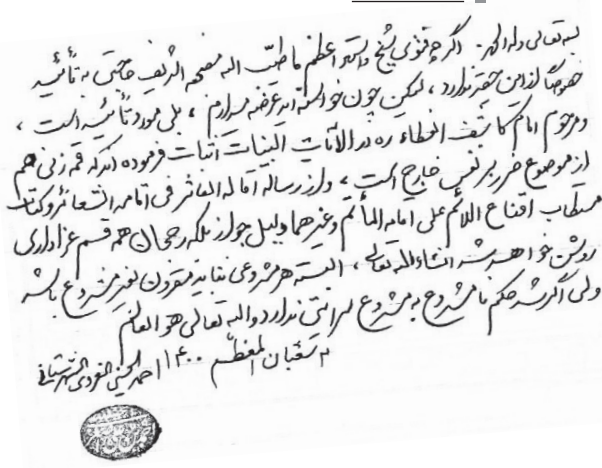 بسمه تعالی وله الحمد. اگر چه فتوی شیخ واستاد اعظم ما طیب الله مضجعه الشریف حاجتی به تأئید
خصوصاً از این حقیر ندارد، لیکن چون خواسته‌اید عرضه میدارم، بلی مورد تأئید است،
و مرحوم امام کاشف الغطاء ره در الآیات البینات اثبات فرموده اند که قمه زنی هم
از موضوع ضرر بر نفس خارج است، و از رساله اقالة العاثر فی اقامة الشعائر و کتاب
مستطاب اقناع اللائم علی اقامة المأتم وغیرهما دلیل جواز بلکه رجحان همه قسم عزاداری
روشن خواهد شد انشاءالله تعالی، البته هر مشروعی نباید مقرون بغیر مشروع باشد
ولی اگر شد حکم نا مشروع به مشروع سرایتی ندارد والله تعالی هو العالم
شعبان المعظم ۱۴۰۰ احمد الحسینی الشهرستانی